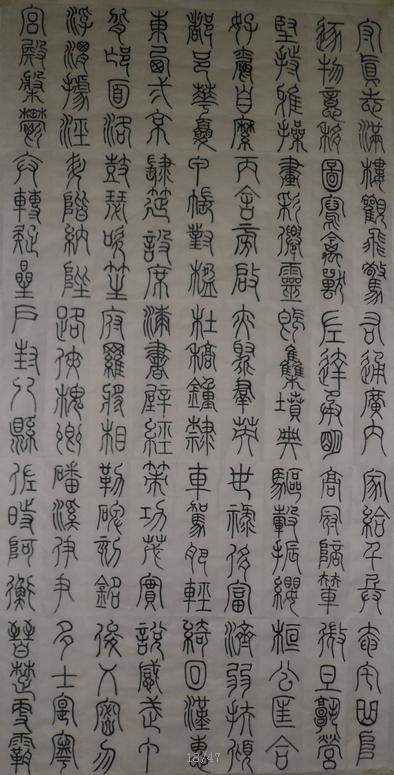 守真志滿樓觀飛驚右通廣內家給千兵奄宅曲阜
逐物意移圖寫禽獸左達承明高冠陪輦微旦孰營
堅持雅操畫彩僊靈既集墳典驅轂振纓桓公匡合
好爵自縻丙舍旁啟亦聚羣英世祿侈富濟弱扶傾
都邑華夏甲帳對楹杜稿鍾隸車駕肥輕綺回漢惠
東西二京肆筵設席漆書壁經策功茂實說感武丁
背邙面洛鼓瑟吹笙府羅將相勒碑刻銘俊乂密勿
浮渭據涇升階納陛路俠槐卿磻溪伊尹多士寔寧
宮殿槃鬱弁轉疑星戶封八縣佐時阿衡晉楚更霸
18/47